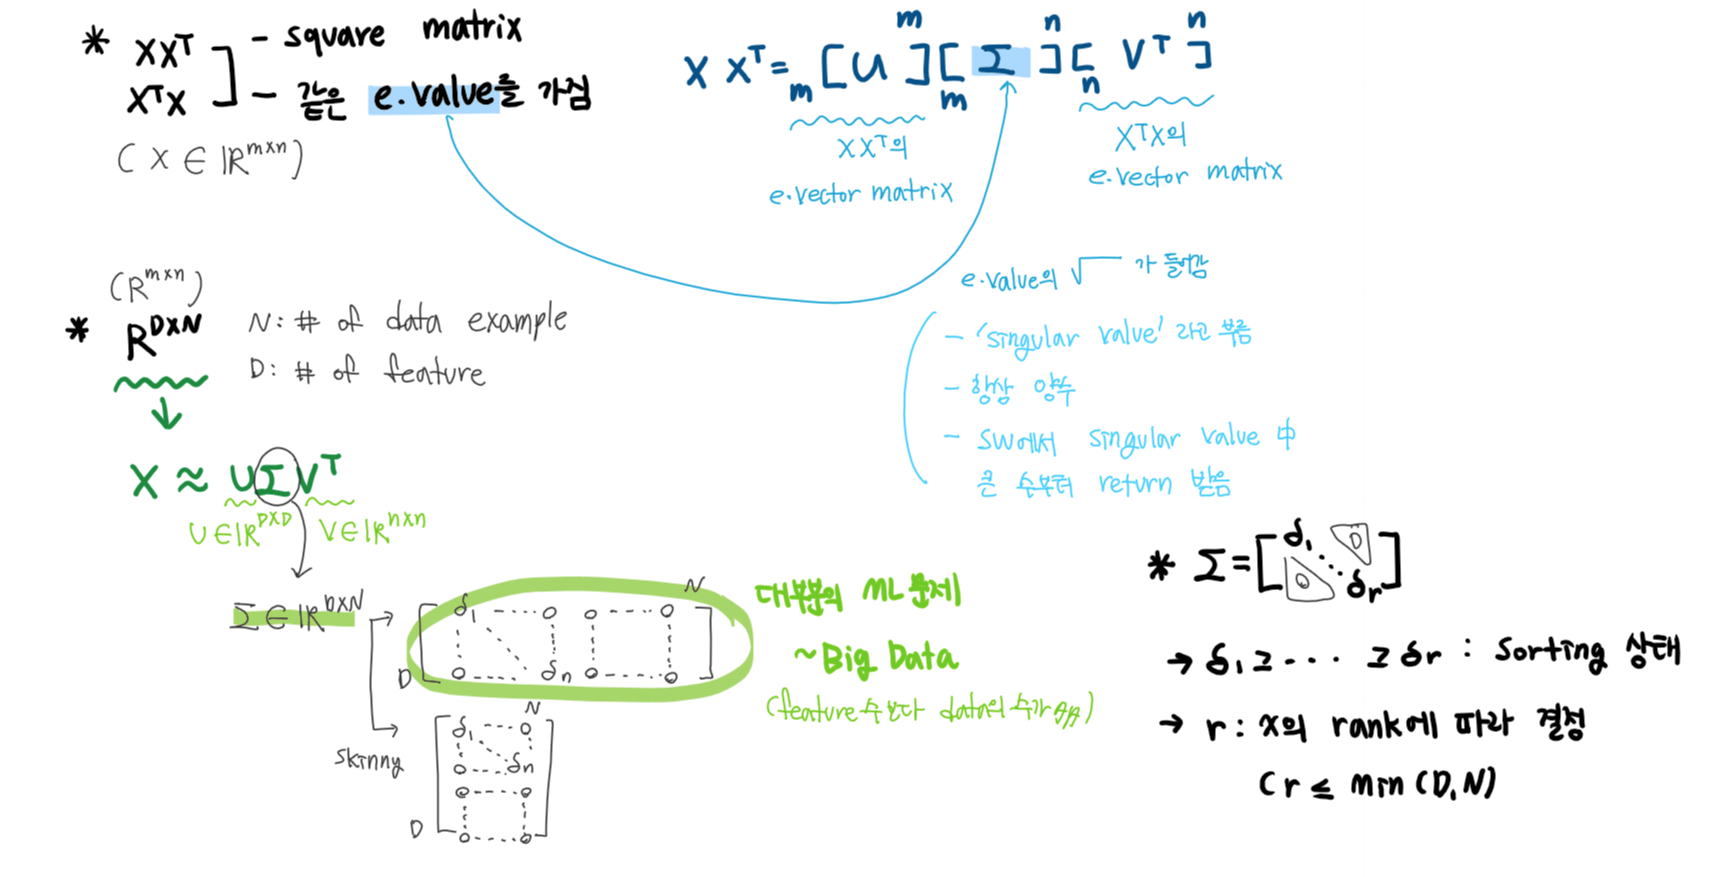 * XXᵀ ] - square matrix
XᵀX ] - 같은 e.value를 가짐
(X ∈ ℝᵐˣⁿ)
X Xᵀ = m[U]m m[Σ]n n[Vᵀ]n
XXᵀ의
e.vector matrix
XᵀX의
e.vector matrix
e.value의 √ 가 들어감
- 'singular value' 라고 부름
- 항상 양수
- SW에서 singular value 中
큰 수부터 return 받음
(Rᵐˣⁿ)
* Rᴰˣᴺ
N: # of data example
D: # of feature
↓
X ≈ UΣVᵀ
U∈ℝᴰˣᴰ V∈ℝⁿˣⁿ
Σ ∈ ℝᴰˣᴺ
N
δ₁ ---- 0 0 --- 0
D 0 ---- δn 0 ---- 0
대부분의 ML 문제
~ Big Data
(feature 수보다 data의 수가 多)
skinny
N
δ₁ -- 0
0 --- δn
0 ---- 0
D 0 ---- 0
* Σ = [δ₁ ⋱ δr]
0
0
→ δ₁ ≥ ··· ≥ δr : Sorting 상태
→ r : X의 rank에 따라 결정
(r ≤ min(D,N)